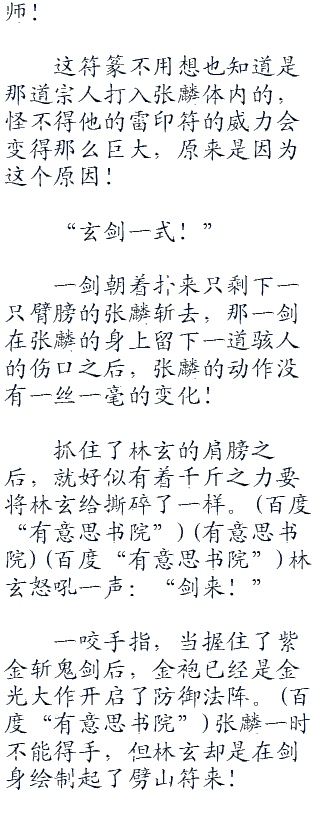 师！
这符篆不用想也知道是
那道宗人打入张麟体内的，
怪不得他的雷印符的威力会
变得那么巨大，原来是因为
这个原因！
“玄剑一式！”
一剑朝着扑来只剩下一
只臂膀的张麟斩去，那一剑
在张麟的身上留下一道骇人
的伤口之后，张麟的动作没
有一丝一毫的变化！
抓住了林玄的肩膀之
后，就好似有着千斤之力要
将林玄给撕碎了一样。(百度
“有意思书院”)(有意思书
院)(百度“有意思书院”)林
玄怒吼一声：“剑来！”
一咬手指，当握住了紫
金斩鬼剑后，金袍已经是金
光大作开启了防御法阵。(百
度“有意思书院”)张麟一时
不能得手，但林玄却是在剑
身绘制起了劈山符来！